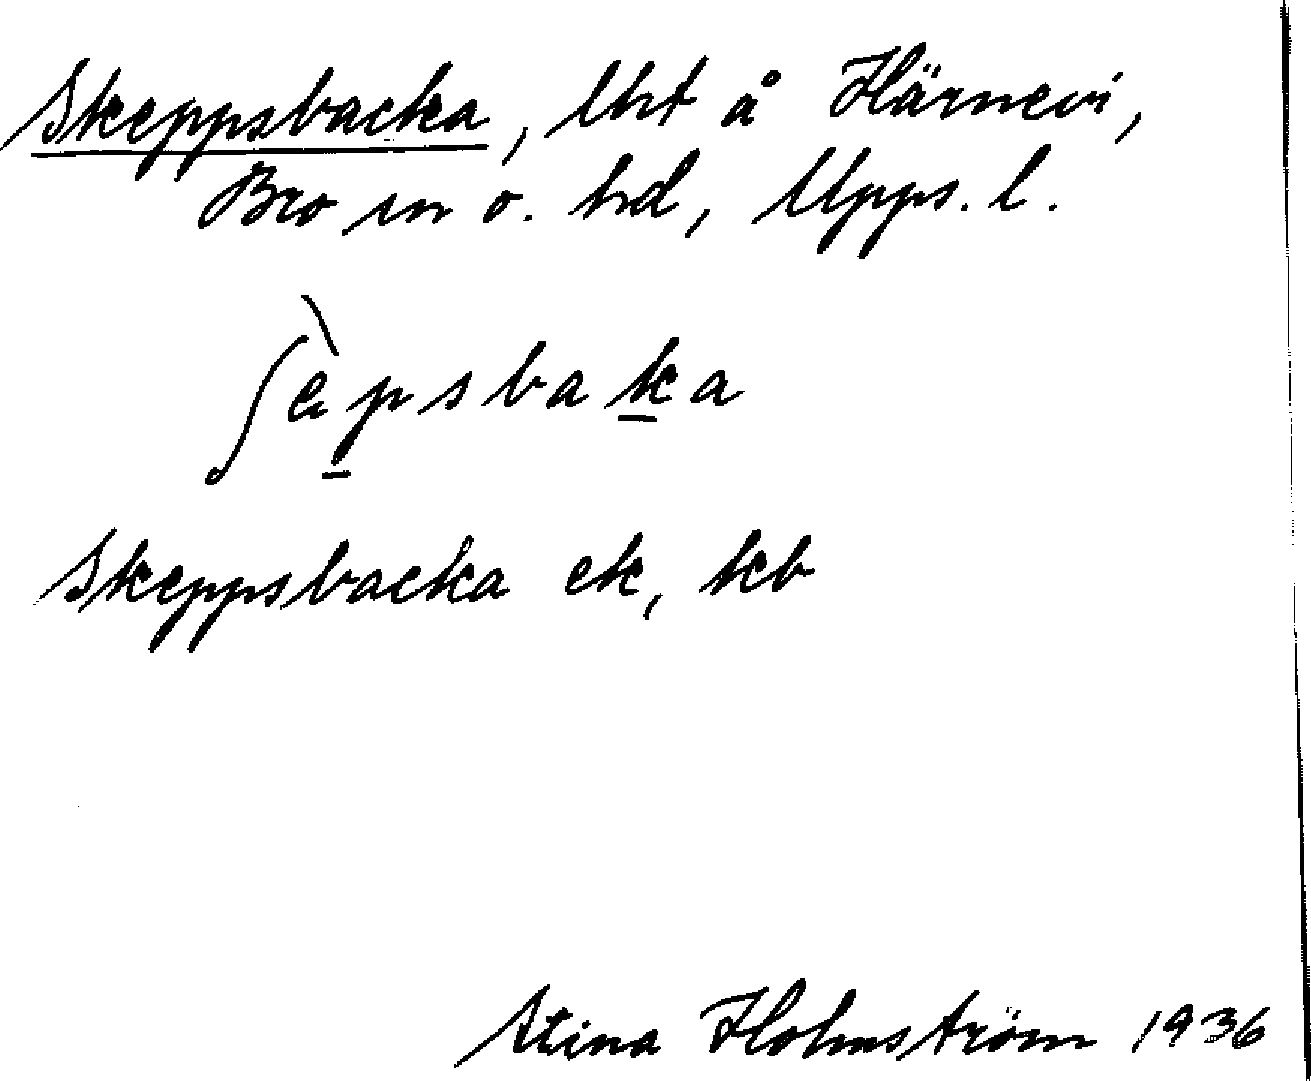 Skeppsbacka, lht å Härnevi,
Bro sn o. hd, Upps. l.
ʃèpsbaka
Skeppsbacka ek, kb
Stina Holmström 1936